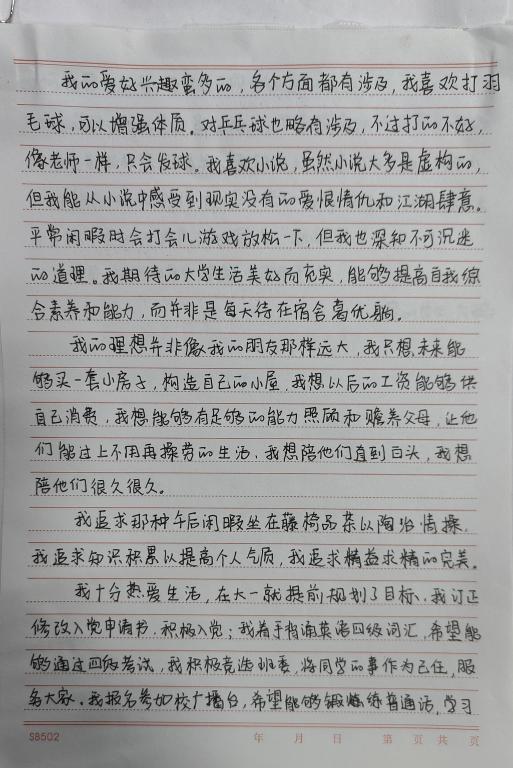 我的爱好兴趣蛮多的，各个方面都有涉及，我喜欢打羽
毛球，可以增强体质。对乒乓球也略有涉及，不过打的不好，
像老师一样，只会发球。我喜欢小说，虽然小说大多是虚构的，
但我能从小说中感受到现实没有的爱恨情仇和江湖肆意。
平常闲暇时会打会儿游戏放松一下，但我也深知不可沉迷
的道理。我期待的大学生活美好而充实，能够提高自我综
合素养和能力，而并非是每天待在宿舍葛优躺。
我的理想并非像我的朋友那样远大，我只想未来能
够买一套小房子，构造自己的小屋，我想以后的工资能够供
自己消费，我想能够有足够的能力照顾和赡养父母，让他
们能过上不用再操劳的生活，我想陪他们直到白头，我想
陪他们很久很久。
我追求那种午后闲暇坐在藤椅品茶以陶冶情操，
我追求知识积累以提高个人气质，我追求精益求精的完美。
我十分热爱生活，在大一就提前规划了目标，我订正
修改入党申请书，积极入党；我着手背诵英语四级词汇，希望能
够通过四级考试，我积极竞选班委，将同学的事作为己任，服
务大家。我报名参加校广播台，希望能够锻炼练普通话，学习
SB502 年 月 日 第 页 共 页